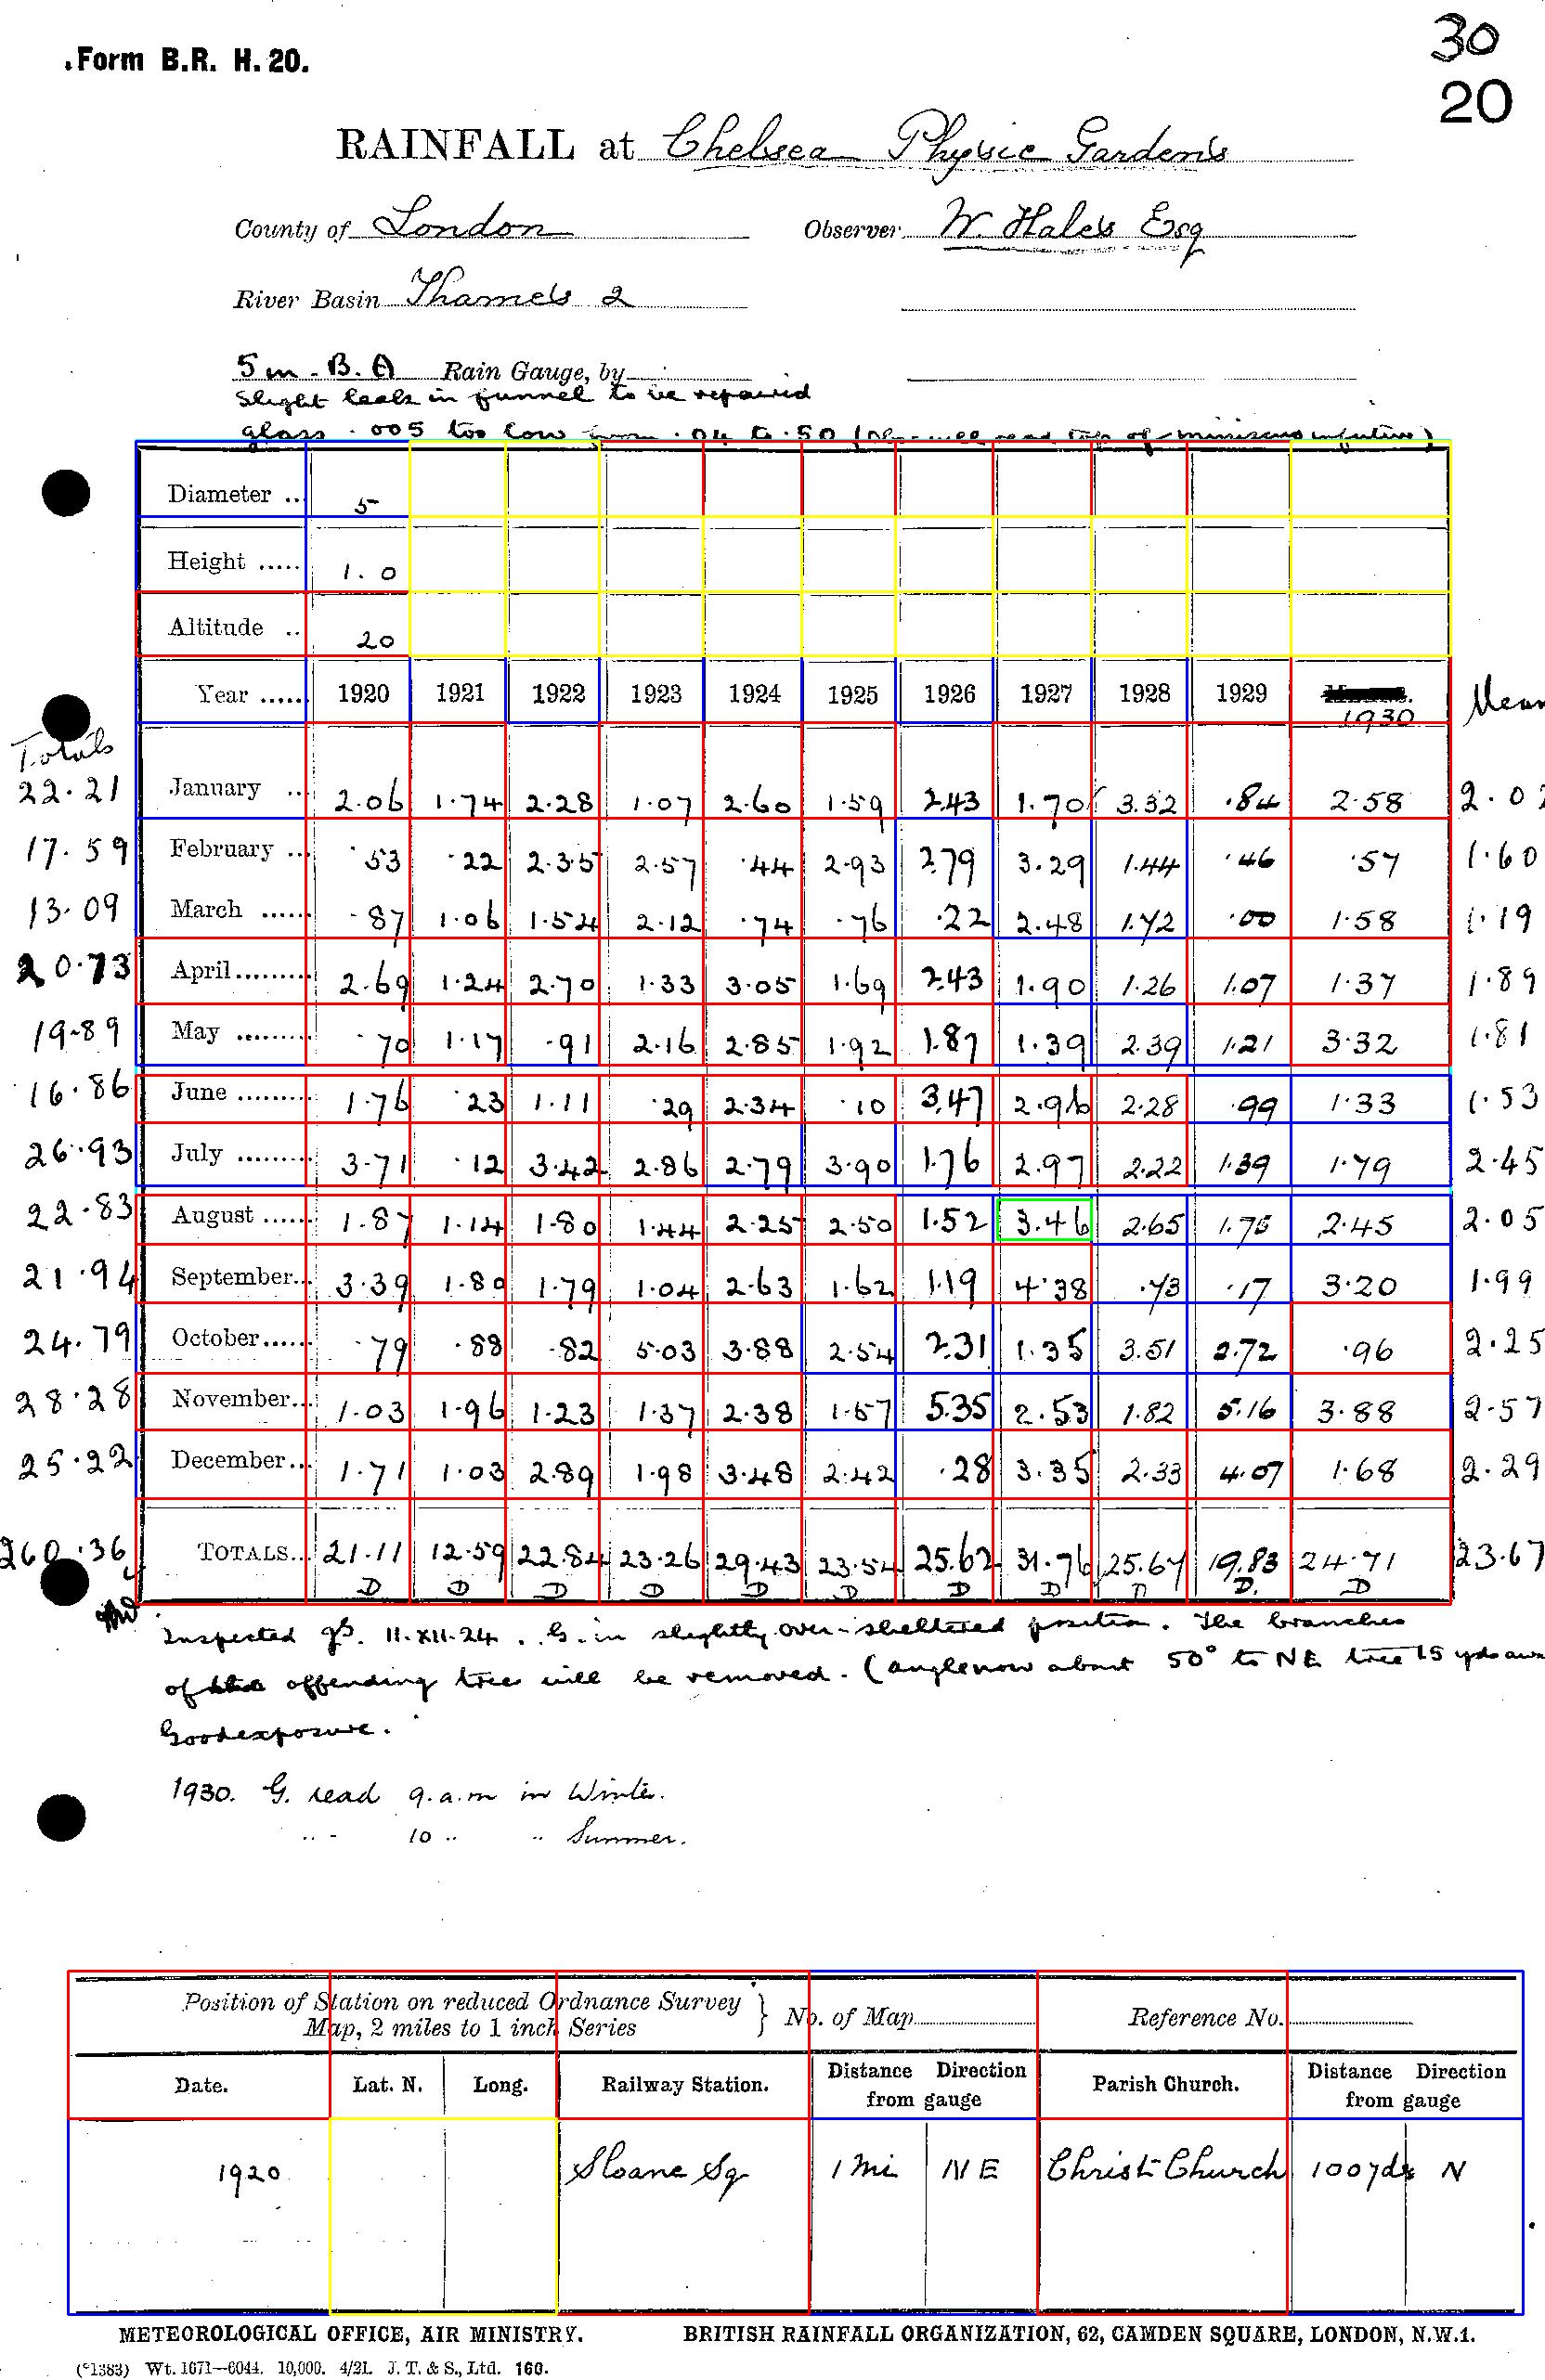 Form B.R. H. 20.
30
20
RAINFALL at Chelsea Physic Gardens
County of London Observer W. Hales Esq
River Basin Thames 2
5 in - B. A Rain Gauge, by
Slight leak in funnel to be repaired
glass .005 too low from .04 to .50 (Obs. will read top of miniscus in future)
Diameter .. 5
Height ..... 1.0
Altitude .. 20
Year ..... 1920 1921 1922 1923 1924 1925 1926 1927 1928 1929 1930 Mean
Totals
22.21 January .. 2.06 1.74 2.28 1.07 2.60 1.59 2.43 1.70 3.32 .84 2.58 2.02
17.59 February .. .53 .22 2.35 2.57 .44 2.93 2.79 3.29 1.44 .46 .57 1.60
13.09 March ...... .87 1.06 1.54 2.12 .74 .76 .22 2.48 1.72 .00 1.58 1.19
20.73 April......... 2.69 1.24 2.70 1.33 3.05 1.69 2.43 1.90 1.26 1.07 1.37 1.89
19.89 May ......... .70 1.17 .91 2.16 2.85 1.92 1.87 1.39 2.39 1.21 3.32 1.81
16.86 June ......... 1.76 .23 1.11 .29 2.34 .10 3.47 2.96 2.28 .99 1.33 1.53
26.93 July ......... 3.71 .12 3.42 2.86 2.79 3.90 1.76 2.97 2.22 1.39 1.79 2.45
22.83 August ...... 1.87 1.14 1.80 1.44 2.25 2.50 1.52 3.46 2.65 1.75 2.45 2.05
21.94 September... 3.39 1.80 1.79 1.04 2.63 1.62 1.19 4.38 .73 .17 3.20 1.99
24.79 October...... .79 .88 .82 5.03 3.88 2.54 2.31 1.35 3.51 2.72 .96 2.25
28.28 November... 1.03 1.96 1.23 1.37 2.38 1.57 5.35 2.53 1.82 5.16 3.88 2.57
25.22 December... 1.71 1.03 2.89 1.98 3.48 2.42 .28 3.35 2.33 4.07 1.68 2.29
260.36 TOTALS... 21.11 12.59 22.84 23.26 29.43 23.54 25.62 31.76 25.67 19.83 24.71 23.67
D D D D D D D D D D. D
Inspected 11.XII.24. G. in slightly over-sheltered position. The branches
of offending tree will be removed. (angle now about 50° to NE tree 15 yds
Good exposure.
1930. G. read 9.a.m in Winter.
.. - 10 .. .. Summer.
Position of Station on reduced Ordnance Survey Map, 2 miles to 1 inch Series } No. of Map Reference No.
Date. Lat. N. Long. Railway Station. Distance Direction from gauge Parish Church. Distance Direction from gauge
1920 Sloane Sq 1 mi NE Christ Church 100yds N
METEOROLOGICAL OFFICE, AIR MINISTRY. BRITISH RAINFALL ORGANIZATION, 62, CAMDEN SQUARE, LONDON, N.W.1.
(*1383) Wt. 1671—6044. 10,000. 4/21. J. T. & S., Ltd. 160.